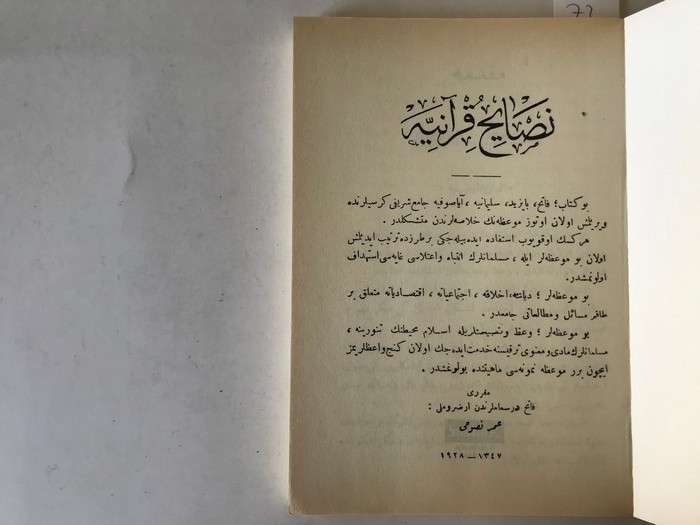 73
نصَايحِ قُرآنيّه
بو كتاب ؛ فاتح ، بايزيد ، سليمانيه ، آياصوفيه جامع شريفى كرسيلرنده
ويريلمش اولان اوتوز موعظه‌نك خلاصه‌لرندن متشكلدر .
هركسك اوقويوب استفاده ايده‌بيله‌جكى بر طرزده ترتيب ايديلمش
اولان بو موعظه‌لر ايله ، مسلمانلرك انتباه واعتلاسى غايه‌سى استهداف
اولونمشدر .
بو موعظه‌لر ؛ دياناته ، اخلاقه ، اجتماعياته ، اقتصادياته متعلق بر
طاقم مسائل ومطالعاتى جامعدر .
بو موعظه‌لر ؛ وعظ ونصيحتلريله اسلام محيطنك تنويرينه ،
مسلمانلرك مادى ومعنوى ترقيسنه خدمت ايده‌جك اولان كنج واعظلريمز
ايچون برر موعظه نمونه‌سى ماهيتنده بولونمقده‌در .
مقررى
فاتح درسعاملرندن ارضروملى :
عمر نصوحى
١٣٤٧ — ١٩٢٨